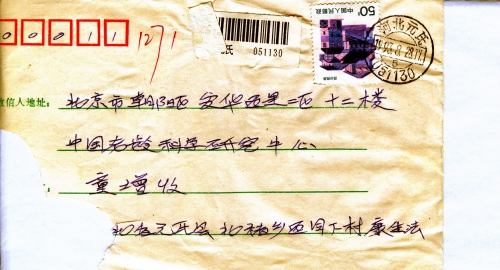 0 0 0 1 1
1271
氏 051130
50分
中国人民邮政
河北元氏
051130
收信人地址:
北京市朝阳区安华西里二区十二楼
中国老龄科学研究中心
董增收
河北元氏县北褚乡西同下村康生法